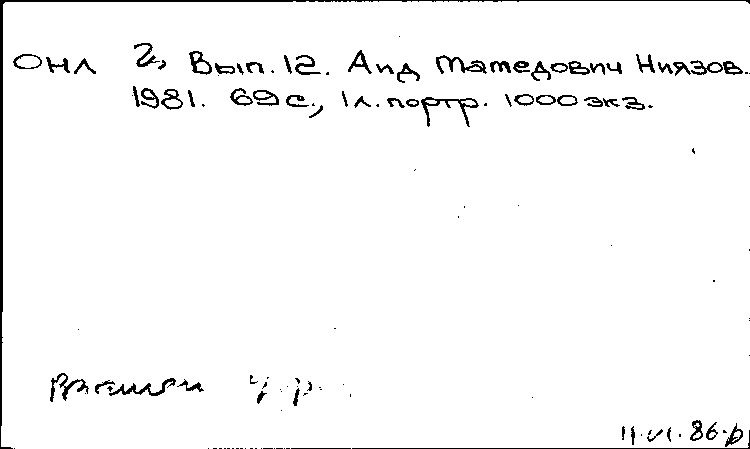 ОНЛ 2, Вып. 12. Аид Мамедович Ниязов.
1981. 69 с., 1 л. портр. 1000 экз.
11.VI.86.р